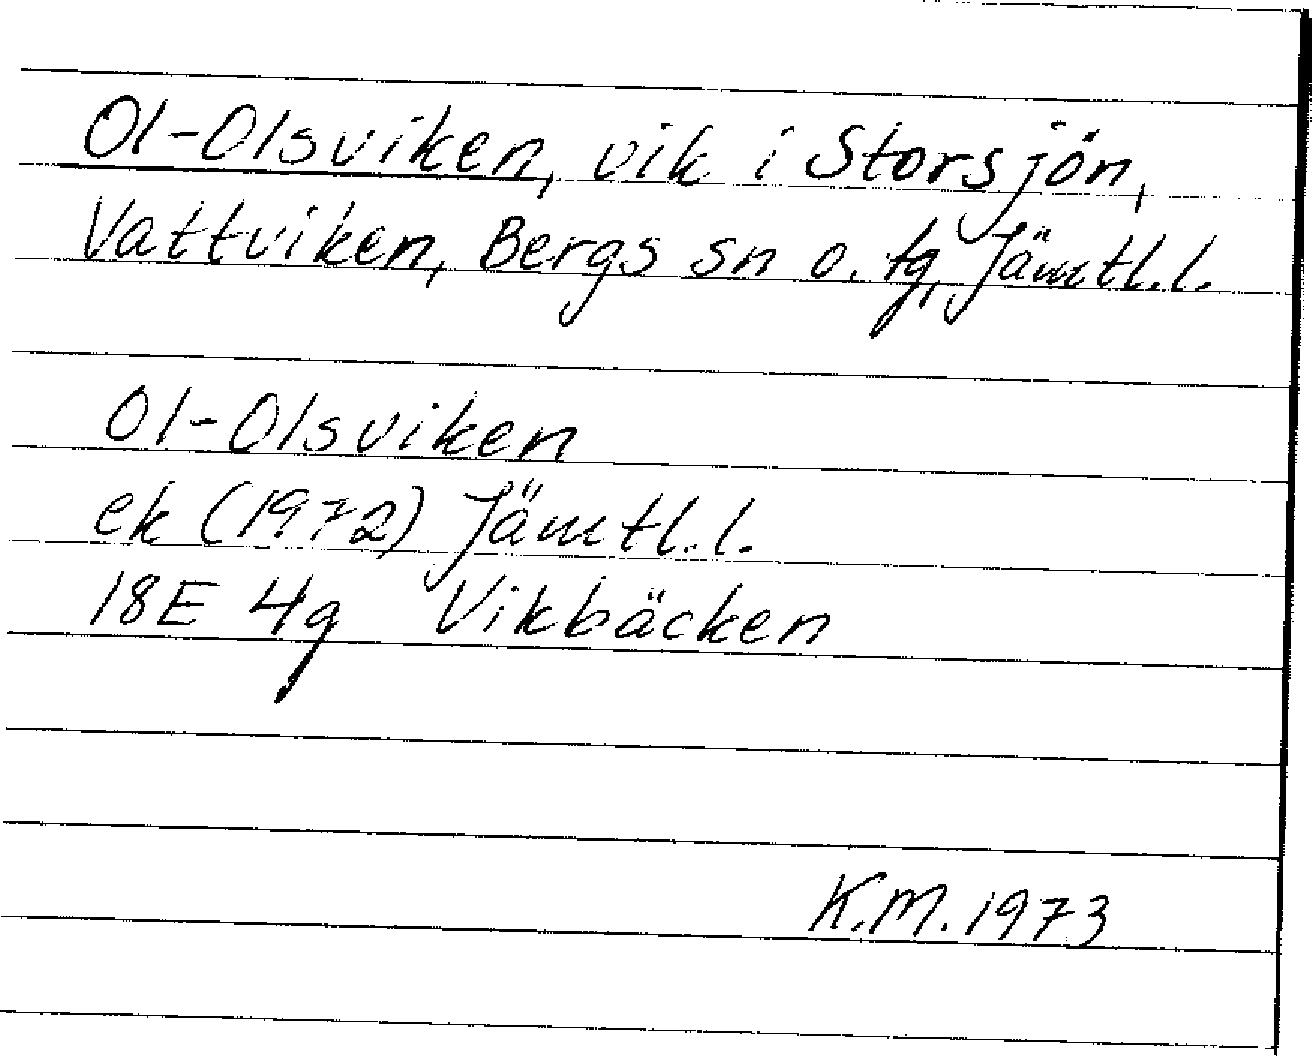 Ol-Olsviken, vik i Storsjön,
Vattviken, Bergs sn o. tg, Jämtl.l.
Ol-Olsviken
ek (1972) Jämtl.l.
18E 4g Vikbäcken
K.M. 1973